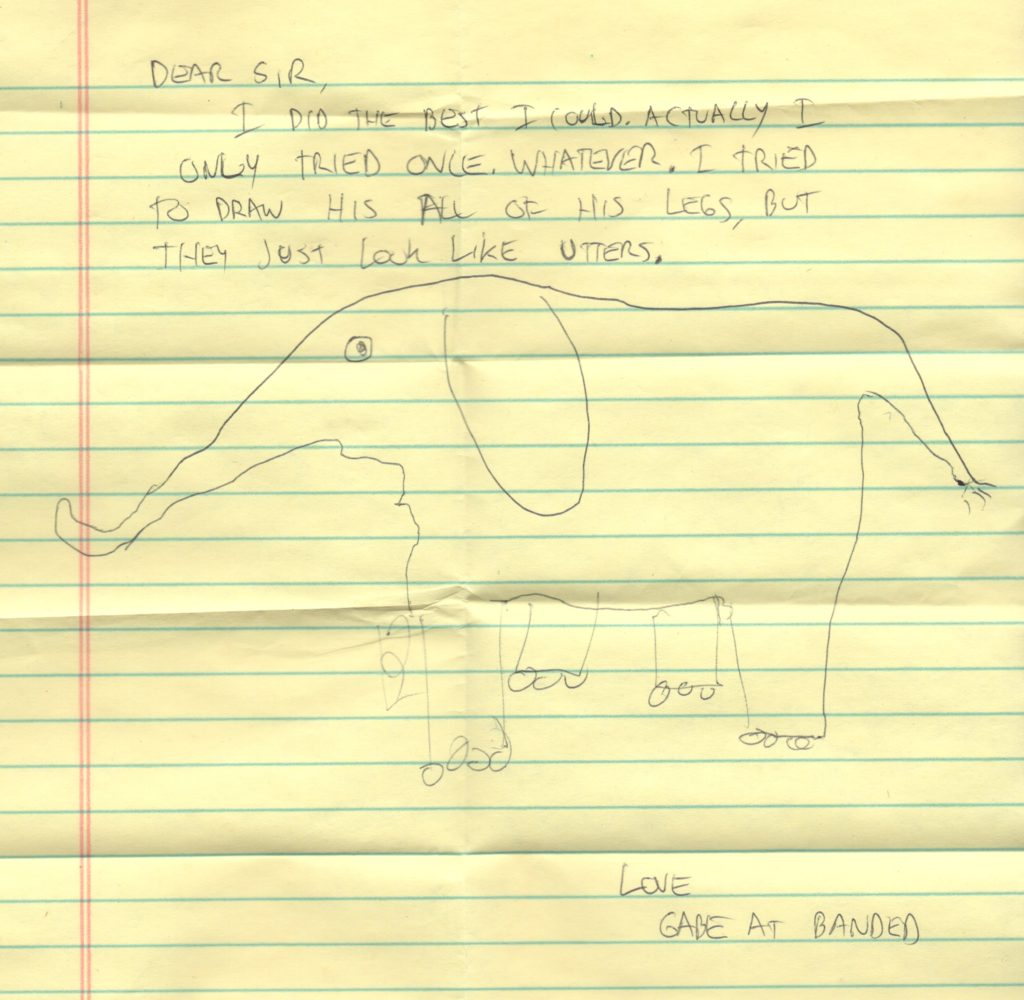 DEAR SIR,
I DID THE BEST I COULD. ACTUALLY I
ONLY TRIED ONCE. WHATEVER. I TRIED
TO DRAW HIS ALL OF HIS LEGS, BUT
THEY JUST LOOK LIKE UTTERS.
LOVE
GABE AT BANDED